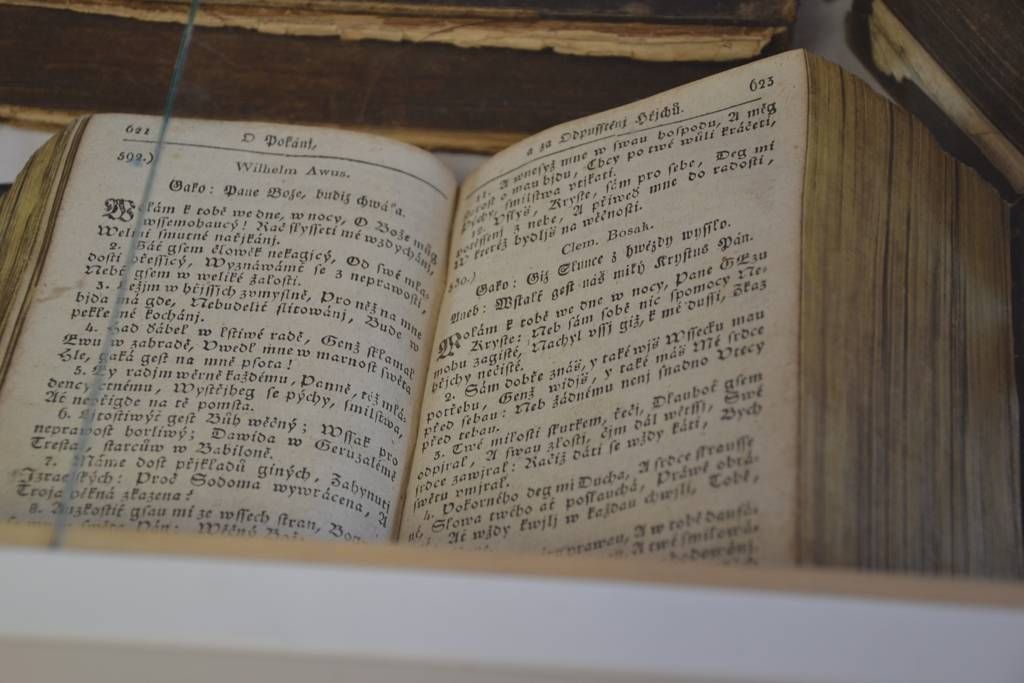 621
O Pokánj,
592.)
Wilhelm Awus.
Gako: Pane Bože, budiž chwála.
Wolám k tobě we dne, w nocy, O Bože můg
wssemohaucý! Rač slysseti mé wzdychánj,
Welmi smutné nařjkánj.
2. Gáť gsem člowěk nekagicý, Od swé mla-
dosti přessicý, Wyznáwámť se z neprawosti,
Nebť gsem w weliké žalosti.
3. Ležjm w hřjssjch zúmyslně, Pro něž na mne
bjda má gde, Nebudeliť slitowánj, Bude w
pekle mé kochánj.
4. Had ďábel w lstiwé radě, Genž sklamal
Ewu w zahradě, Uwedl mne w marnost swěta
Hle, gaká gest na mně psota!
5. Ey radjm wěrně každému, Panně, též mlá-
dency ctnému, Wystřjheg se pýchy, smilstwa,
Ať nepřigde na tě pomsta.
6. Litostiwýť gest Bůh wěčný; Wssak pro
neprawost horliwý; Dawida w Geruzalémě
Trestal, starcůw w Babiloně.
7. Máme dost přjkladů giných, Zahynutj
Izraelských: Proč Sodoma wywrácena, A
Troja pěkná zkažena?
8. Auzkostiť gsau mi ze wssech stran,
623
a za Odpusstěnj Hřjchů.
11. A wnesyž mne w swau hospodu, A měg
žalost o mau bjdu, Chcy po twé wůli kráčeti,
Pýchy, smilstwa utjkati.
12. Uslyš, Kryste, sám pro sebe, Deg mi
potěssenj z nebe, A přiweď mne do radosti,
W kteréž bydljš na wěčnosti.
Clem. Bosak.
Gako: Giž Slunce z hwězdy wysslo.
Aneb: Wstalť gest náš milý Krystus Pán.
Wolám k tobě we dne w nocy, Pane GEzu
Kryste: Neb sám sobě nic spomocy Ne-
mohu zagisté, Nachyl ussj giž, k mé dussi, Zkaz
hřjchy nečisté.
2. Sám dobře znáš, y také wjš Wssecku mau
potřebu, Genž widjš, y také máš Mé srdce
před sebau: Neb žádnému nenj snadno Utécy
před tebau.
3. Twé milosti skutkem, řečj, Dlauhoť gsem
odpjral, A swau zlostj, čjm dál wětssj, Swé
srdce zawjral: Račiž dáti se wždy káti, Bych
swětu umjral.
4. Pokorného deg mi Ducha, A srdce skraussé
né, Slowa twého ať poslauchá, Práwě obrá-
Ať wždy kwjlj w každau chwjli, Tobě,